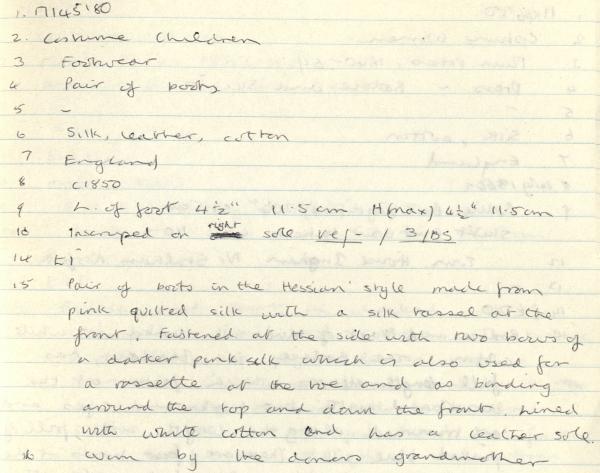 1. M145'80
2. Costume Children
3 Footwear
4 Pair of boots
5 -
6 Silk, leather, cotton
7 England
8 c1850
9 L. of foot 4½" 11.5cm H(max) 4½" 11.5cm
10 Inscribed on right sole ve/-/ 3/BS
14 E1
15 Pair of boots in the 'Hessian' style made from
pink quilted silk with a silk tassel at the
front. Fastened at the side with two bows of
a darker pink silk which is also used for
a rossette at the toe and as binding
around the top and down the front. Lined
with white cotton and has a leather sole.
16 Worn by the donors grandmother